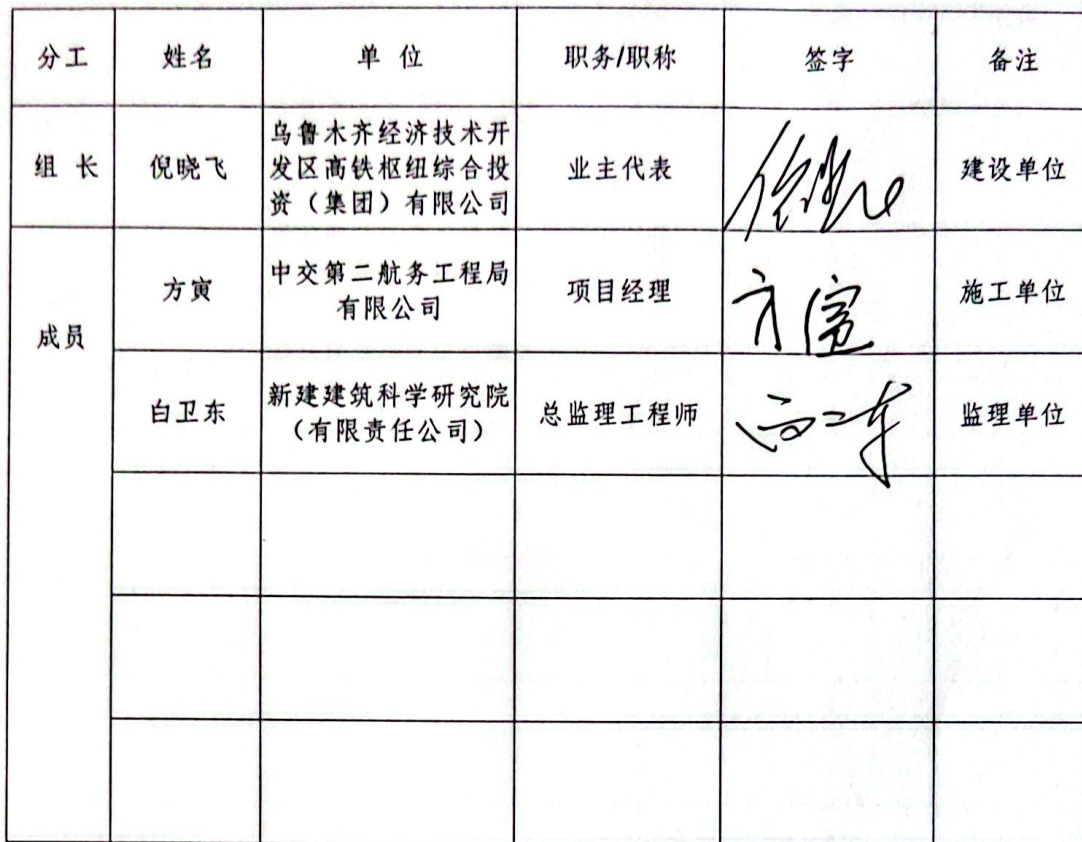 分工 姓名 单 位 职务/职称 签字 备注
组 长 倪晓飞 乌鲁木齐经济技术开
发区高铁枢纽综合投
资（集团）有限公司 业主代表 建设单位
成员 方寅 中交第二航务工程局
有限公司 项目经理 方寅 施工单位
白卫东 新建建筑科学研究院
（有限责任公司） 总监理工程师 白卫东 监理单位